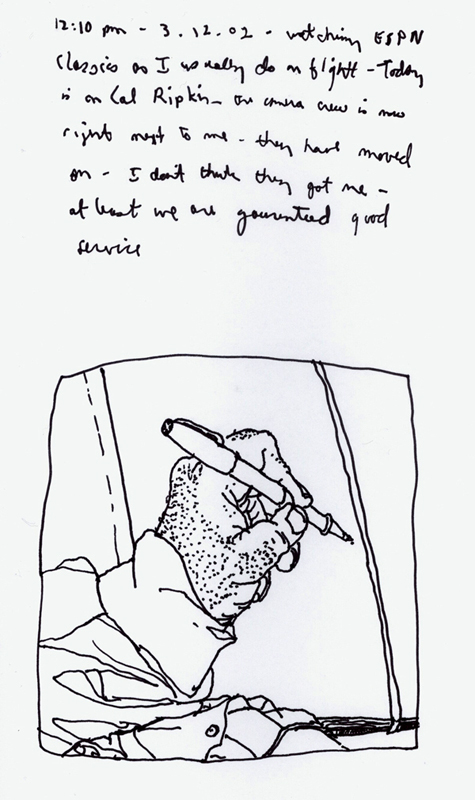 12:10 pm - 3.12.02 - watching ESPN
Classics as I usually do on flight - Today
is on Cal Ripkin - the camera crew is now
right next to me - they have moved
on - I don't think they got me -
at least we are gaurenteed good
service